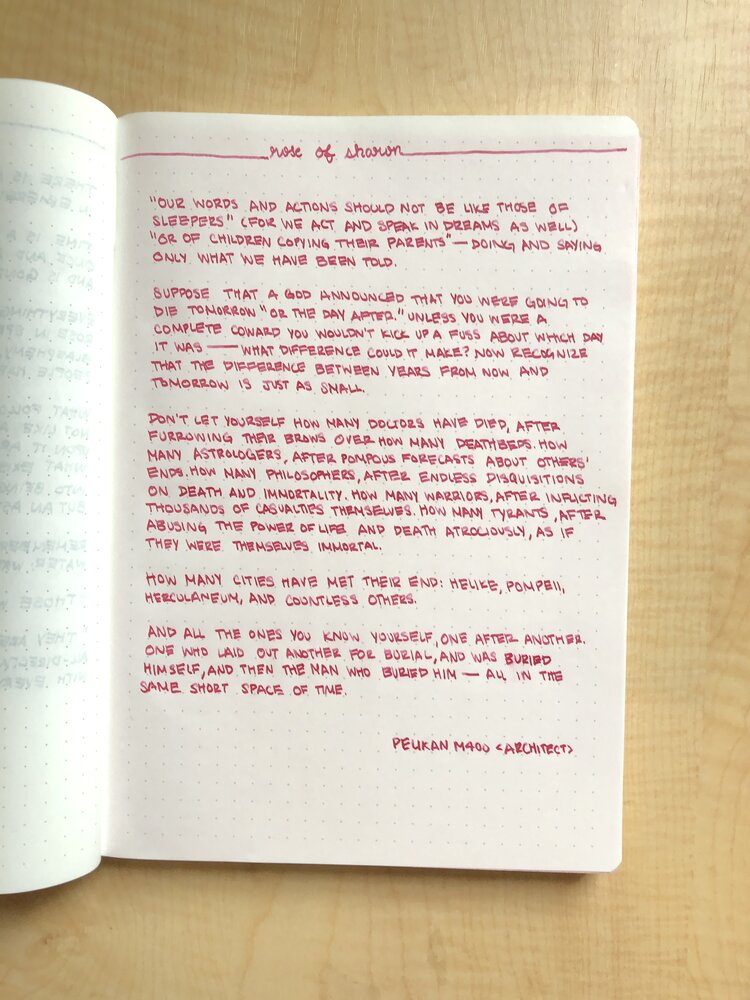 rose of sharon
"OUR WORDS AND ACTIONS SHOULD NOT BE LIKE THOSE OF
SLEEPERS" (FOR WE ACT AND SPEAK IN DREAMS AS WELL)
"OR OF CHILDREN COPYING THEIR PARENTS" — DOING AND SAYING
ONLY WHAT WE HAVE BEEN TOLD.
SUPPOSE THAT A GOD ANNOUNCED THAT YOU WERE GOING TO
DIE TOMORROW "OR THE DAY AFTER." UNLESS YOU WERE A
COMPLETE COWARD YOU WOULDN'T KICK UP A FUSS ABOUT WHICH DAY
IT WAS — WHAT DIFFERENCE COULD IT MAKE? NOW RECOGNIZE
THAT THE DIFFERENCE BETWEEN YEARS FROM NOW AND
TOMORROW IS JUST AS SMALL.
DON'T LET YOURSELF HOW MANY DOCTORS HAVE DIED, AFTER
FURROWING THEIR BROWS OVER HOW MANY DEATHBEDS. HOW
MANY ASTROLOGERS, AFTER POMPOUS FORECASTS ABOUT OTHERS'
ENDS. HOW MANY PHILOSOPHERS, AFTER ENDLESS DISQUISITIONS
ON DEATH AND IMMORTALITY. HOW MANY WARRIORS, AFTER INFLICTING
THOUSANDS OF CASUALTIES THEMSELVES. HOW MANY TYRANTS, AFTER
ABUSING THE POWER OF LIFE AND DEATH ATROCIOUSLY, AS IF
THEY WERE THEMSELVES IMMORTAL.
HOW MANY CITIES HAVE MET THEIR END: HELIKE, POMPEII,
HERCULANEUM, AND COUNTLESS OTHERS.
AND ALL THE ONES YOU KNOW YOURSELF, ONE AFTER ANOTHER.
ONE WHO LAID OUT ANOTHER FOR BURIAL, AND WAS BURIED
HIMSELF, AND THEN THE MAN WHO BURIED HIM — ALL IN THE
SAME SHORT SPACE OF TIME.
PELIKAN M400 <ARCHITECT>